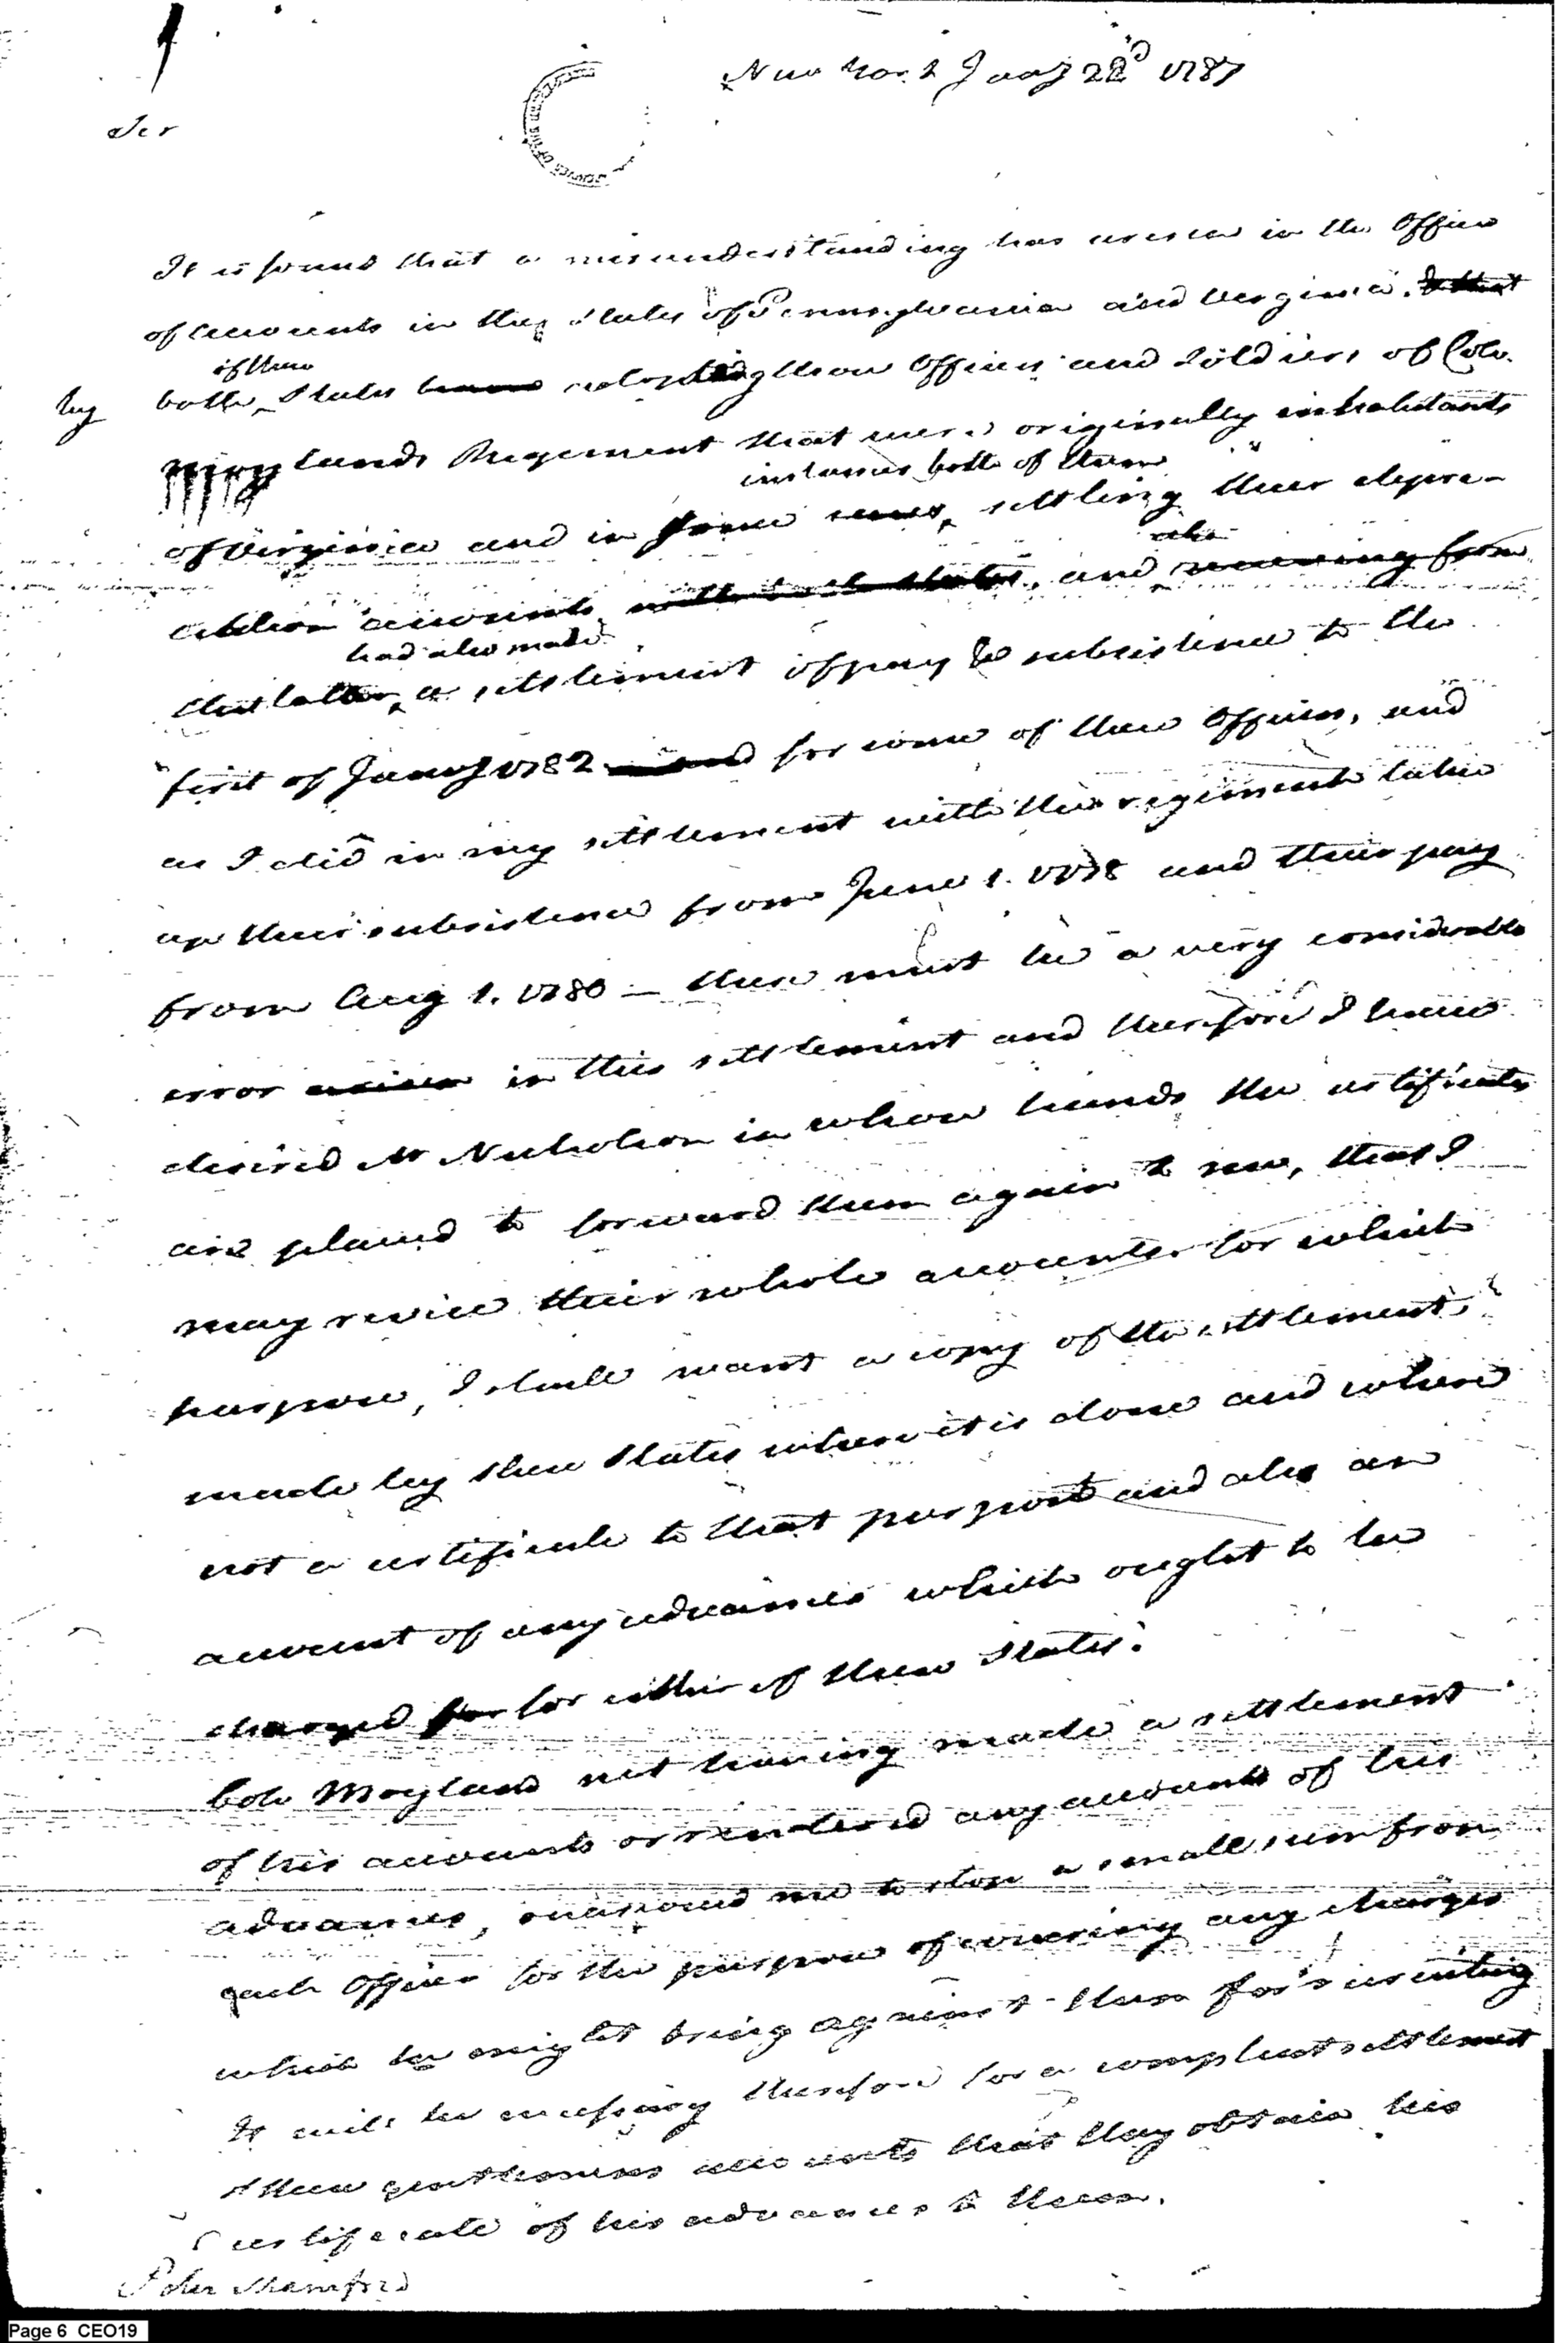 New York Jany 22d 1787
Sir
It is found that a misunderstanding has arisen in the Office
of accounts in the States of Pennsylvania and Virginia. & that
of these
by both States have adopting those Officers and Soldiers of Colo.
Moylands Regement that were originally inhabitants
instances both of them
of Virginia and in some cases, settling their depre-
also
ciation accounts with both states, and receiving from
had also made
that latter, a settlement of pay & subsistence to the
first of Jany 1782 and for some of these Officers, and
as I did in my settlement with the regiment take
up their subsistence from June 1. 1778 and their pay
from Aug 1. 1780 — there must be a very considerable
error arisen in this settlement and therefore I have
desired Mr Nicholson in whose hands the certificates
are placed to forward them again to me, that I
may revise their whole accounts for which
purpose, I shall want a copy of the settlements
made by these States where it is done and where
not a certificate to that purport and also an
account of any advances which ought to be
charged for for either of these States.
Colo Moyland not having made a settlement
of his accounts or rendered any accounts of his
advances, occasioned me to stop a small sum from
each Officer for the purpose of covering any charges
which he might bring against them for recruiting
It will be necessary therefore for a compleat settlement
of these gentlemens accounts that they obtain his
certificate of his advances to them.
John
Page 6 CEO19